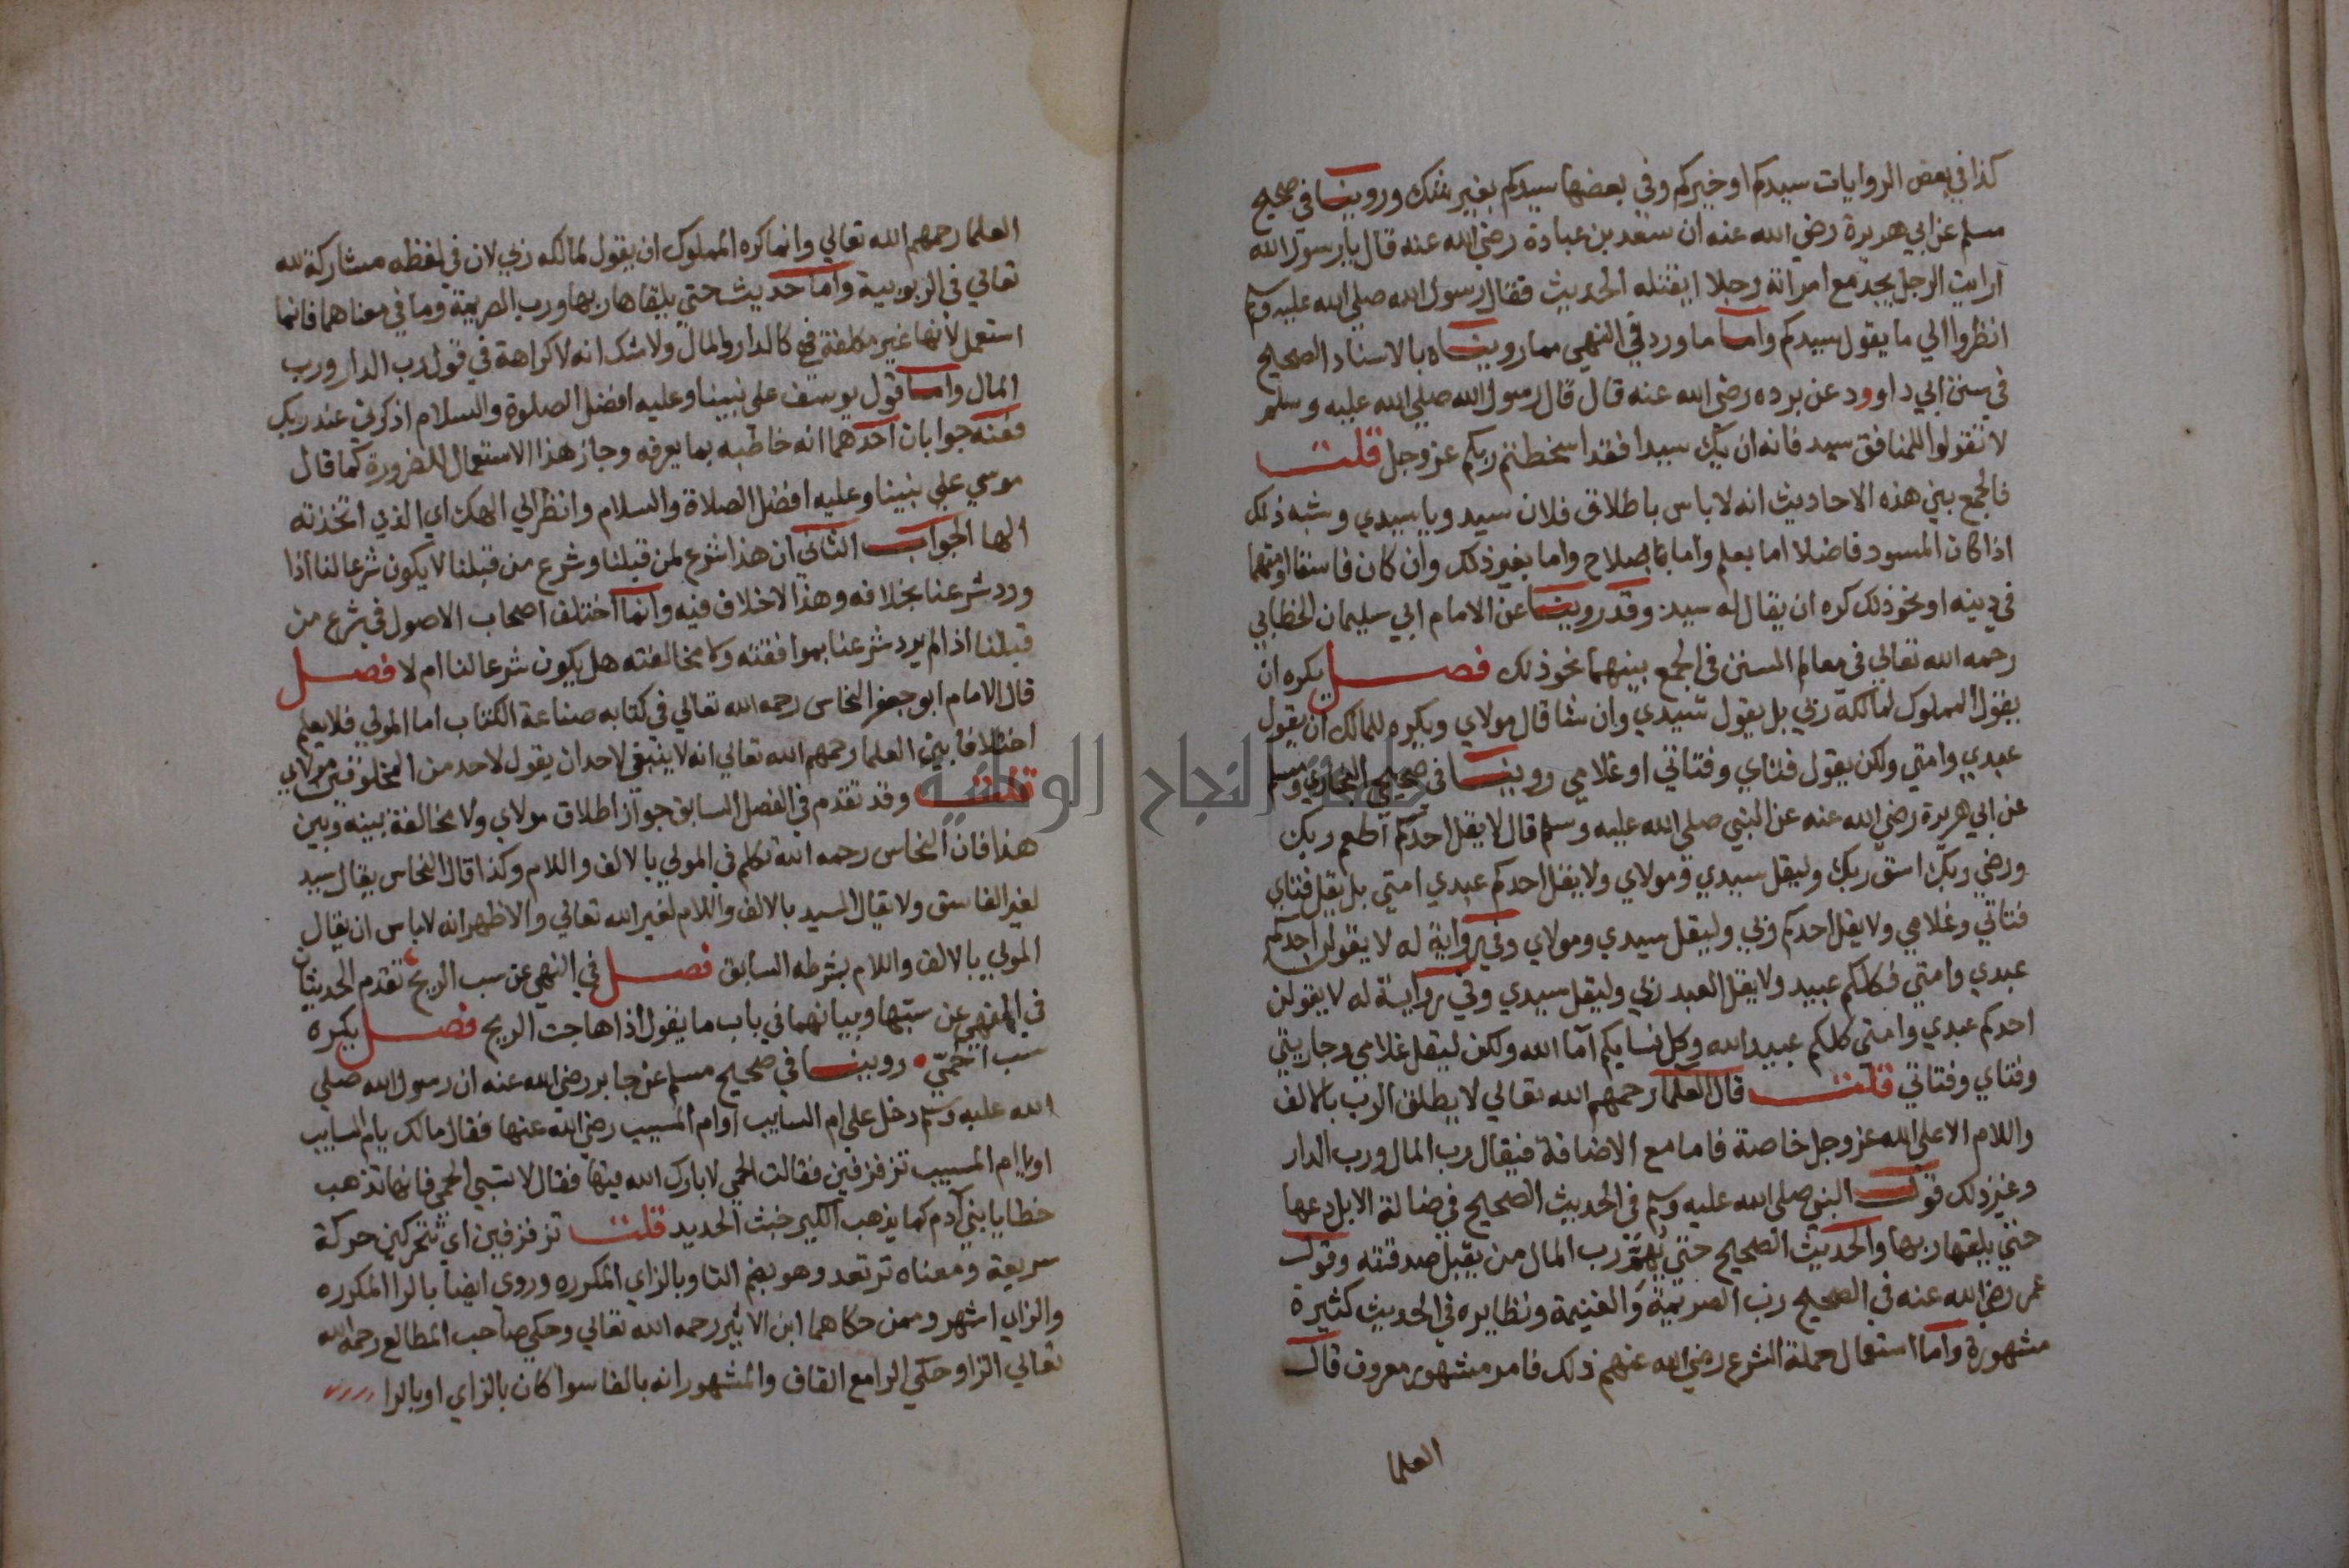 كذا في بعض الروايات سيدكم او خيركم وفي بعضها سيدكم بغير شك وروينا في صحيح
مسلم عن ابي هريرة رضي الله عنه ان سعد بن عبادة رضي الله عنه قال يا رسول الله
ارايت الرجل يجد مع امراته رجلا ايقتله الحديث فقال رسول الله صلي الله عليه وسلم
انظروا الي ما يقول سيدكم واما ما ورد في النهي مما رويناه بالاسناد الصحيح
في سنن ابي داوود عن برده رضي الله عنه قال قال رسول الله صلي الله عليه وسلم
لا تقولوا للمنافق سيد فانه ان يك سيدا فقد اسخطتم ربكم عز وجل قلت
فالجمع بين هذه الاحاديث انه لا باس باطلاق فلان سيد ويا سيدي وشبه ذلك
اذا كان المسود فاضلا اما بعلم واما بصلاح واما بغير ذلك وان كان فاسقا او متهما
في دينه او نحو ذلك كره ان يقال له سيد وقد روينا عن الامام ابي سليمان الخطابي
رحمه الله تعالي في معالم السنن في الجمع بينهما نحو ذلك فصل يكره ان
يقول المملوك لمالكه ربي بل يقول سيدي وان شا قال مولاي ويكره للمالك ان يقول
عبدي وامتي ولكن يقول فتاي وفتاتي او غلامي روينا في صحيحي البخاري ومسلم
عن ابي هريرة رضي الله عنه عن النبي صلي الله عليه وسلم قال لا يقل احدكم اطعم ربك
ورضي ربك اسق ربك وليقل سيدي ومولاي ولا يقل احدكم عبدي امتي بل يقل فتاي
فتاتي وغلامي ولا يقل احدكم ربي وليقل سيدي ومولاي وفي رواية له لا يقولن احدكم
عبدي وامتي فكلكم عبيد ولا يقل العبد ربي وليقل سيدي وفي رواية له لا يقولن
احدكم عبدي وامتي كلكم عبيد الله وكل نسايكم آما الله ولكن ليقل غلامي وجاريتي
وفتاي وفتاتي قلت قال العلما رحمهم الله تعالي لا يطلق الرب بالالف
واللام الا علي الله عز وجل خاصة فاما مع الاضافة فيقال رب المال ورب الدار
وغير ذلك قول النبي صلي الله عليه وسلم في الحديث الصحيح في ضالة الابل دعها
حتي يلقها ربها والحديث الصحيح حتي يهم رب المال من يقبل صدقته وقول
عمر رضي الله عنه في الصحيح رب الصريمة والغنيمة ونظايره في الحديث كثيرة
مشهورة واما استعمال حملة الشرع رضي الله عنهم ذلك فامر مشهور معروف قال
العلما
العلما رحمهم الله تعالي وانما كره المملوك ان يقول لمالكه ربي لان في لفظه مشاركة لله
تعالي في الربوبية واما حديث حتي يلقاها ربها ورب الصريمة وما في معناهما فانما
استعمل لانها غير مكلفة فهي كالدار والمال ولا شك انه لا كراهة في قول رب الدار ورب
المال واما قول يوسف علي نبينا وعليه افضل الصلوة والسلام اذكرني عند ربك
فعنه جوابان احدهما انه خاطبه بما يعرفه وجاز هذا الاستعمال للضرورة كما قال
موسي علي نبينا وعليه افضل الصلاة والسلام وانظر الي الهك اي الذي اتخذته
الها الجواب الثاني ان هذا شرع لمن قبلنا وشرع من قبلنا لا يكون شرعا لنا اذا
ورد شرعنا بخلافه وهذا لاخلاف فيه وانما اختلف اصحاب الاصول في شرع من
قبلنا اذا لم يرد شرعنا بموافقته ولا مخالفته هل يكون شرعا لنا ام لا فصل
قال الامام ابو جعفر النحاس رحمه الله تعالي في كتابه صناعة الكتاب اما المولي فلا يعلم
اختلافا بين العلما رحمهم الله تعالي انه لا ينبغي لاحد ان يقول لاحد من المخلوقين مولاي
قلت وقد تقدم في الفصل السابق جواز اطلاق مولاي ولا مخالفة بينه وبين
هذا فان النحاس رحمه الله تكلم في المولي بالالف واللام وكذا قال النحاس يقال سيد
لغير الفاسق ولا يقال السيد بالالف واللام لغير الله تعالي والاظهر انه لا باس ان يقال
المولي بالالف واللام بشرطه السابق فصل في النهي عن سب الريح تقدم الحديثان
في النهي عن سبها وبيانهما في باب ما يقول اذا هاجت الريح فصل يكره
سب الحمي روينا في صحيح مسلم عن جابر رضي الله عنه ان رسول الله صلي
الله عليه وسلم دخل علي ام السايب او ام المسيب رضي الله عنها فقال مالك يا ام السايب
او يا ام المسيب تزفزفين فقالت الحمي لا بارك الله فيها فقال لا تسبي الحمي فانها تذهب
خطايا بني آدم كما يذهب الكير خبث الحديد قلت تزفزفين اي تتحركين حركة
سريعة ومعناه ترتعد وهو بضم التا وبالزاي المكرره وروي ايضا بالرا المكرره
والزاي اشهر وممن حكاهما ابن الاثير رحمه الله تعالي وحكي صاحب المطالع رحمه الله
تعالي الزا وحكي الرا مع القاف والمشهور انه بالفا سوا كان بالزاي او بالرا
جامعة النجاح الوطنية